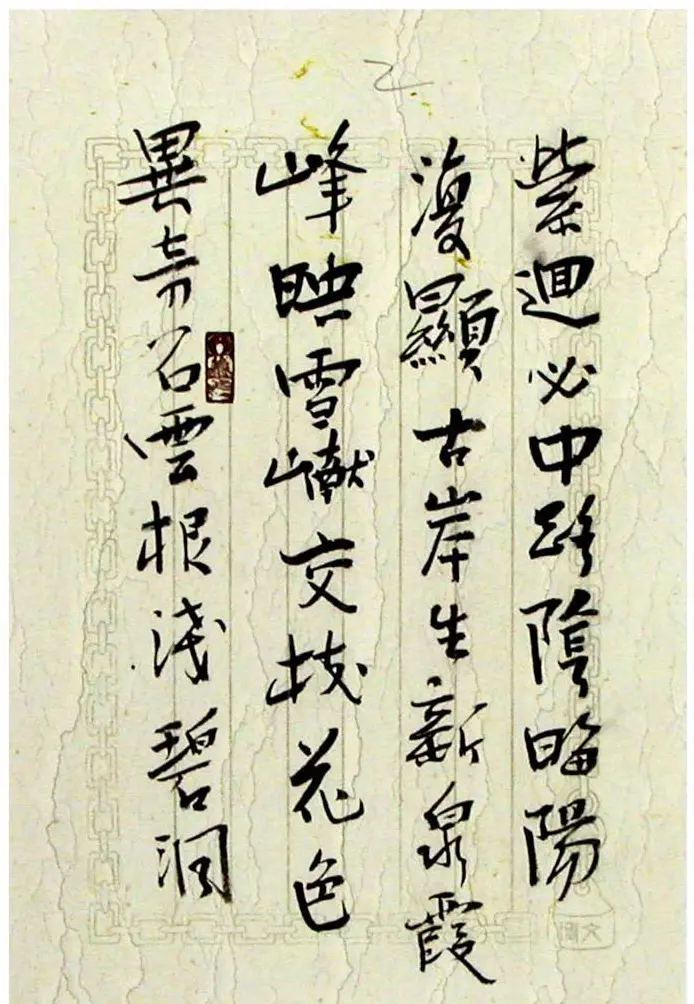 紫迴必中路陰晦陽
復顯古岸生新泉霞
峰映雪巘交枝花色
異奇石雲根淺碧澗